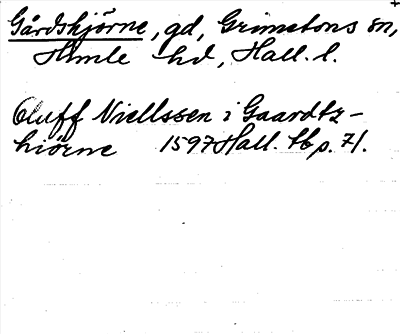 Gårdshjörne, gd, Grimetons sn,
Himle hd, Hall. l.
Oluff Niellssen i Gaardtz-
hiörne 1597 Hall. tb p. 71.